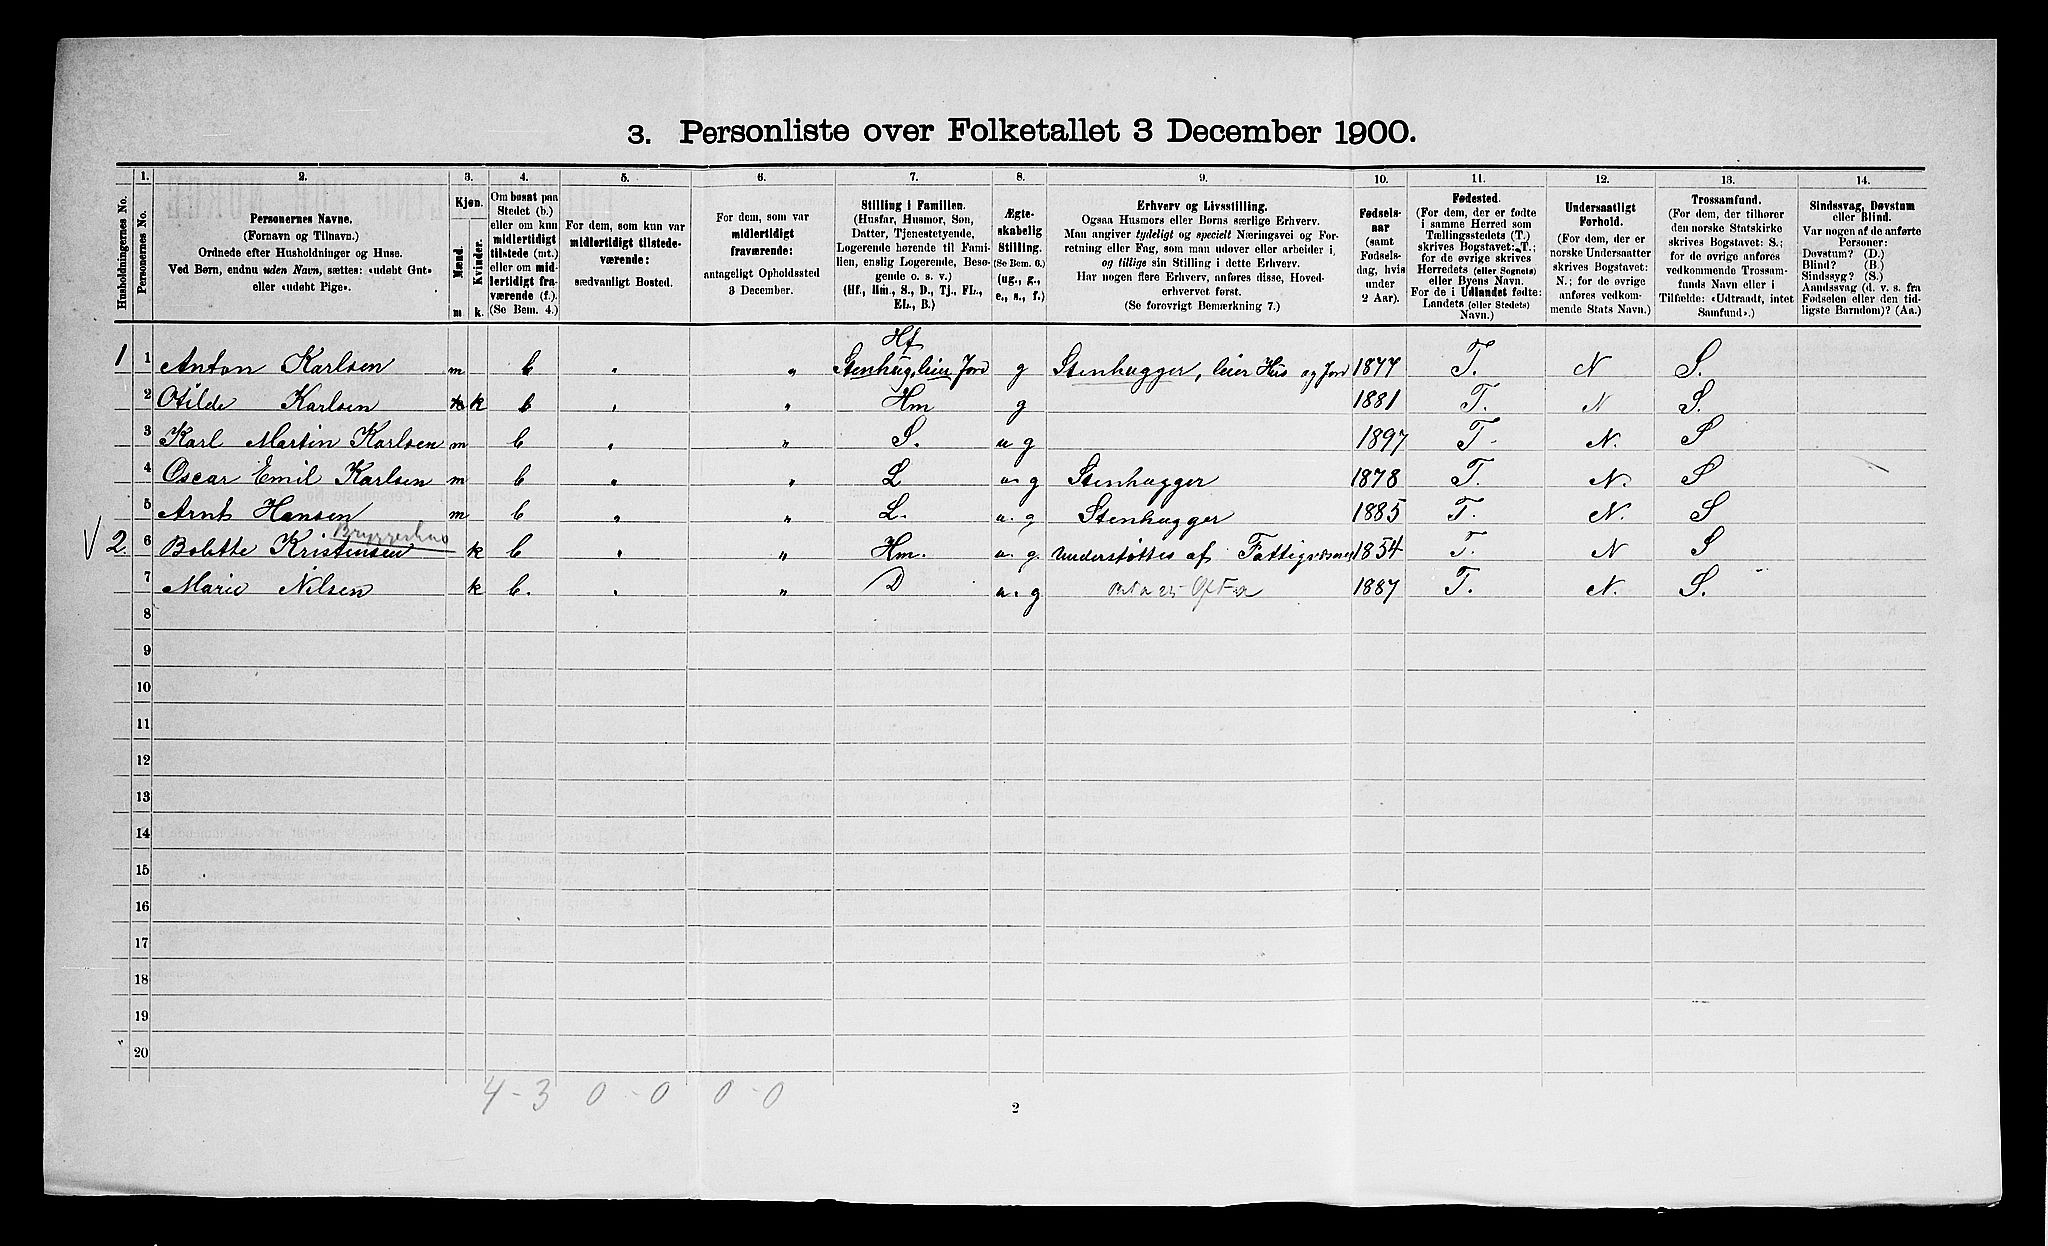 3. Personliste over Folketallet 3 December 1900.
Husholdningernes No.
1.
Personernes No.
2.
Personernes Navne.
(Fornavn og Tilnavn.)
Ordnede efter Husholdninger og Huse.
Ved Børn, endnu uden Navn, sættes: «udøbt Gut»
eller «udøbt Pige».
3.
Kjøn.
Mænd. Kvinder.
m k.
4.
Om bosat paa
Stedet (b.)
eller om kun
midlertidigt
tilstede (mt.)
eller om mid-
lertidigt fra-
værende (f.).
(Se Bem. 4.)
5.
For dem, som kun var
midlertidigt tilstede-
værende:
sædvanligt Bosted.
6.
For dem, som var
midlertidigt
fraværende:
antageligt Opholdssted
3 December.
7.
Stilling i Familien.
(Husfar, Husmor, Søn,
Datter, Tjenestetyende,
Logerende hørende til Fami-
lien, enslig Logerende, Besø-
gende o. s. v.)
(Hf., Hm., S., D., Tj., FL.,
EL., B.)
8.
Ægte-
skabelig
Stilling.
(Se Bem. 6.)
(ug., g.,
e., s., f.)
9.
Erhverv og Livsstilling.
Ogsaa Husmors eller Børns særlige Erhverv.
Man angiver tydeligt og specielt Næringsvei og For-
retning eller Fag, som man udøver eller arbeider i,
og tillige sin Stilling i dette Erhverv.
Har nogen flere Erhverv, anføres disse, Hoved-
erhvervet først.
(Se forøvrigt Bemærkning 7.)
10.
Fødsels-
aar
(samt
Fødsels-
dag, hvis
under
2 Aar).
11.
Fødested.
(For dem, der er fødte
i samme Herred som
Tællingsstedets (T.)
skrives Bogstavet: T.;
for de øvrige skrives
Herredets (eller Sognets)
eller Byens Navn.
For de i Udlandet fødte:
Landets (eller Stedets)
Navn.)
12.
Undersaatligt
Forhold.
(For dem, der er
norske Undersaatter
skrives Bogstavet:
N.; for de øvrige
anføres vedkom-
mende Stats Navn.)
13.
Trossamfund.
(For dem, der tilhører
den norske Statskirke
skrives Bogstavet: S.;
for de øvrige anføres
vedkommende Trossam-
funds Navn eller i
Tilfælde: «Udtraadt, intet
Samfund».)
14.
Sindssvag, Døvstum
eller Blind.
Var nogen af de anførte
Personer:
Døvstum? (D.)
Blind? (B.)
Sindssyg? (S.)
Aandssvag (d. v. s. fra
Fødselen eller den tid-
ligste Barndom)? (Aa.)
Hf
1 1 Anton Karlsen m b " " Stenhug, leier Jord g Stenhugger, leier Hus og Jord 1877 T. N S.
2 Otilde Karlsen k b " " Hm g 1881 T. N S.
3 Karl Martin Karlsen m b " " S. u g 1897 T. N. S
4 Oscar Emil Karlsen m b " " L u. g Stenhugger 1878 T. N. S
5 Arnt Hansen m b " " L. u. g Stenhugger 1885 T. N. S
Bryggerhus
V 2 6 Bolette Kristensen k b " " Hm. u. g. understøttes af Fattigvæsenet 1854 T. N S
7 Marie Nilsen k b. " " D u. g 1887 T. N. S.
8
9
10
11
12
13
14
15
16
17
18
19
20
4 - 3 0 - 0 0 - 0
2